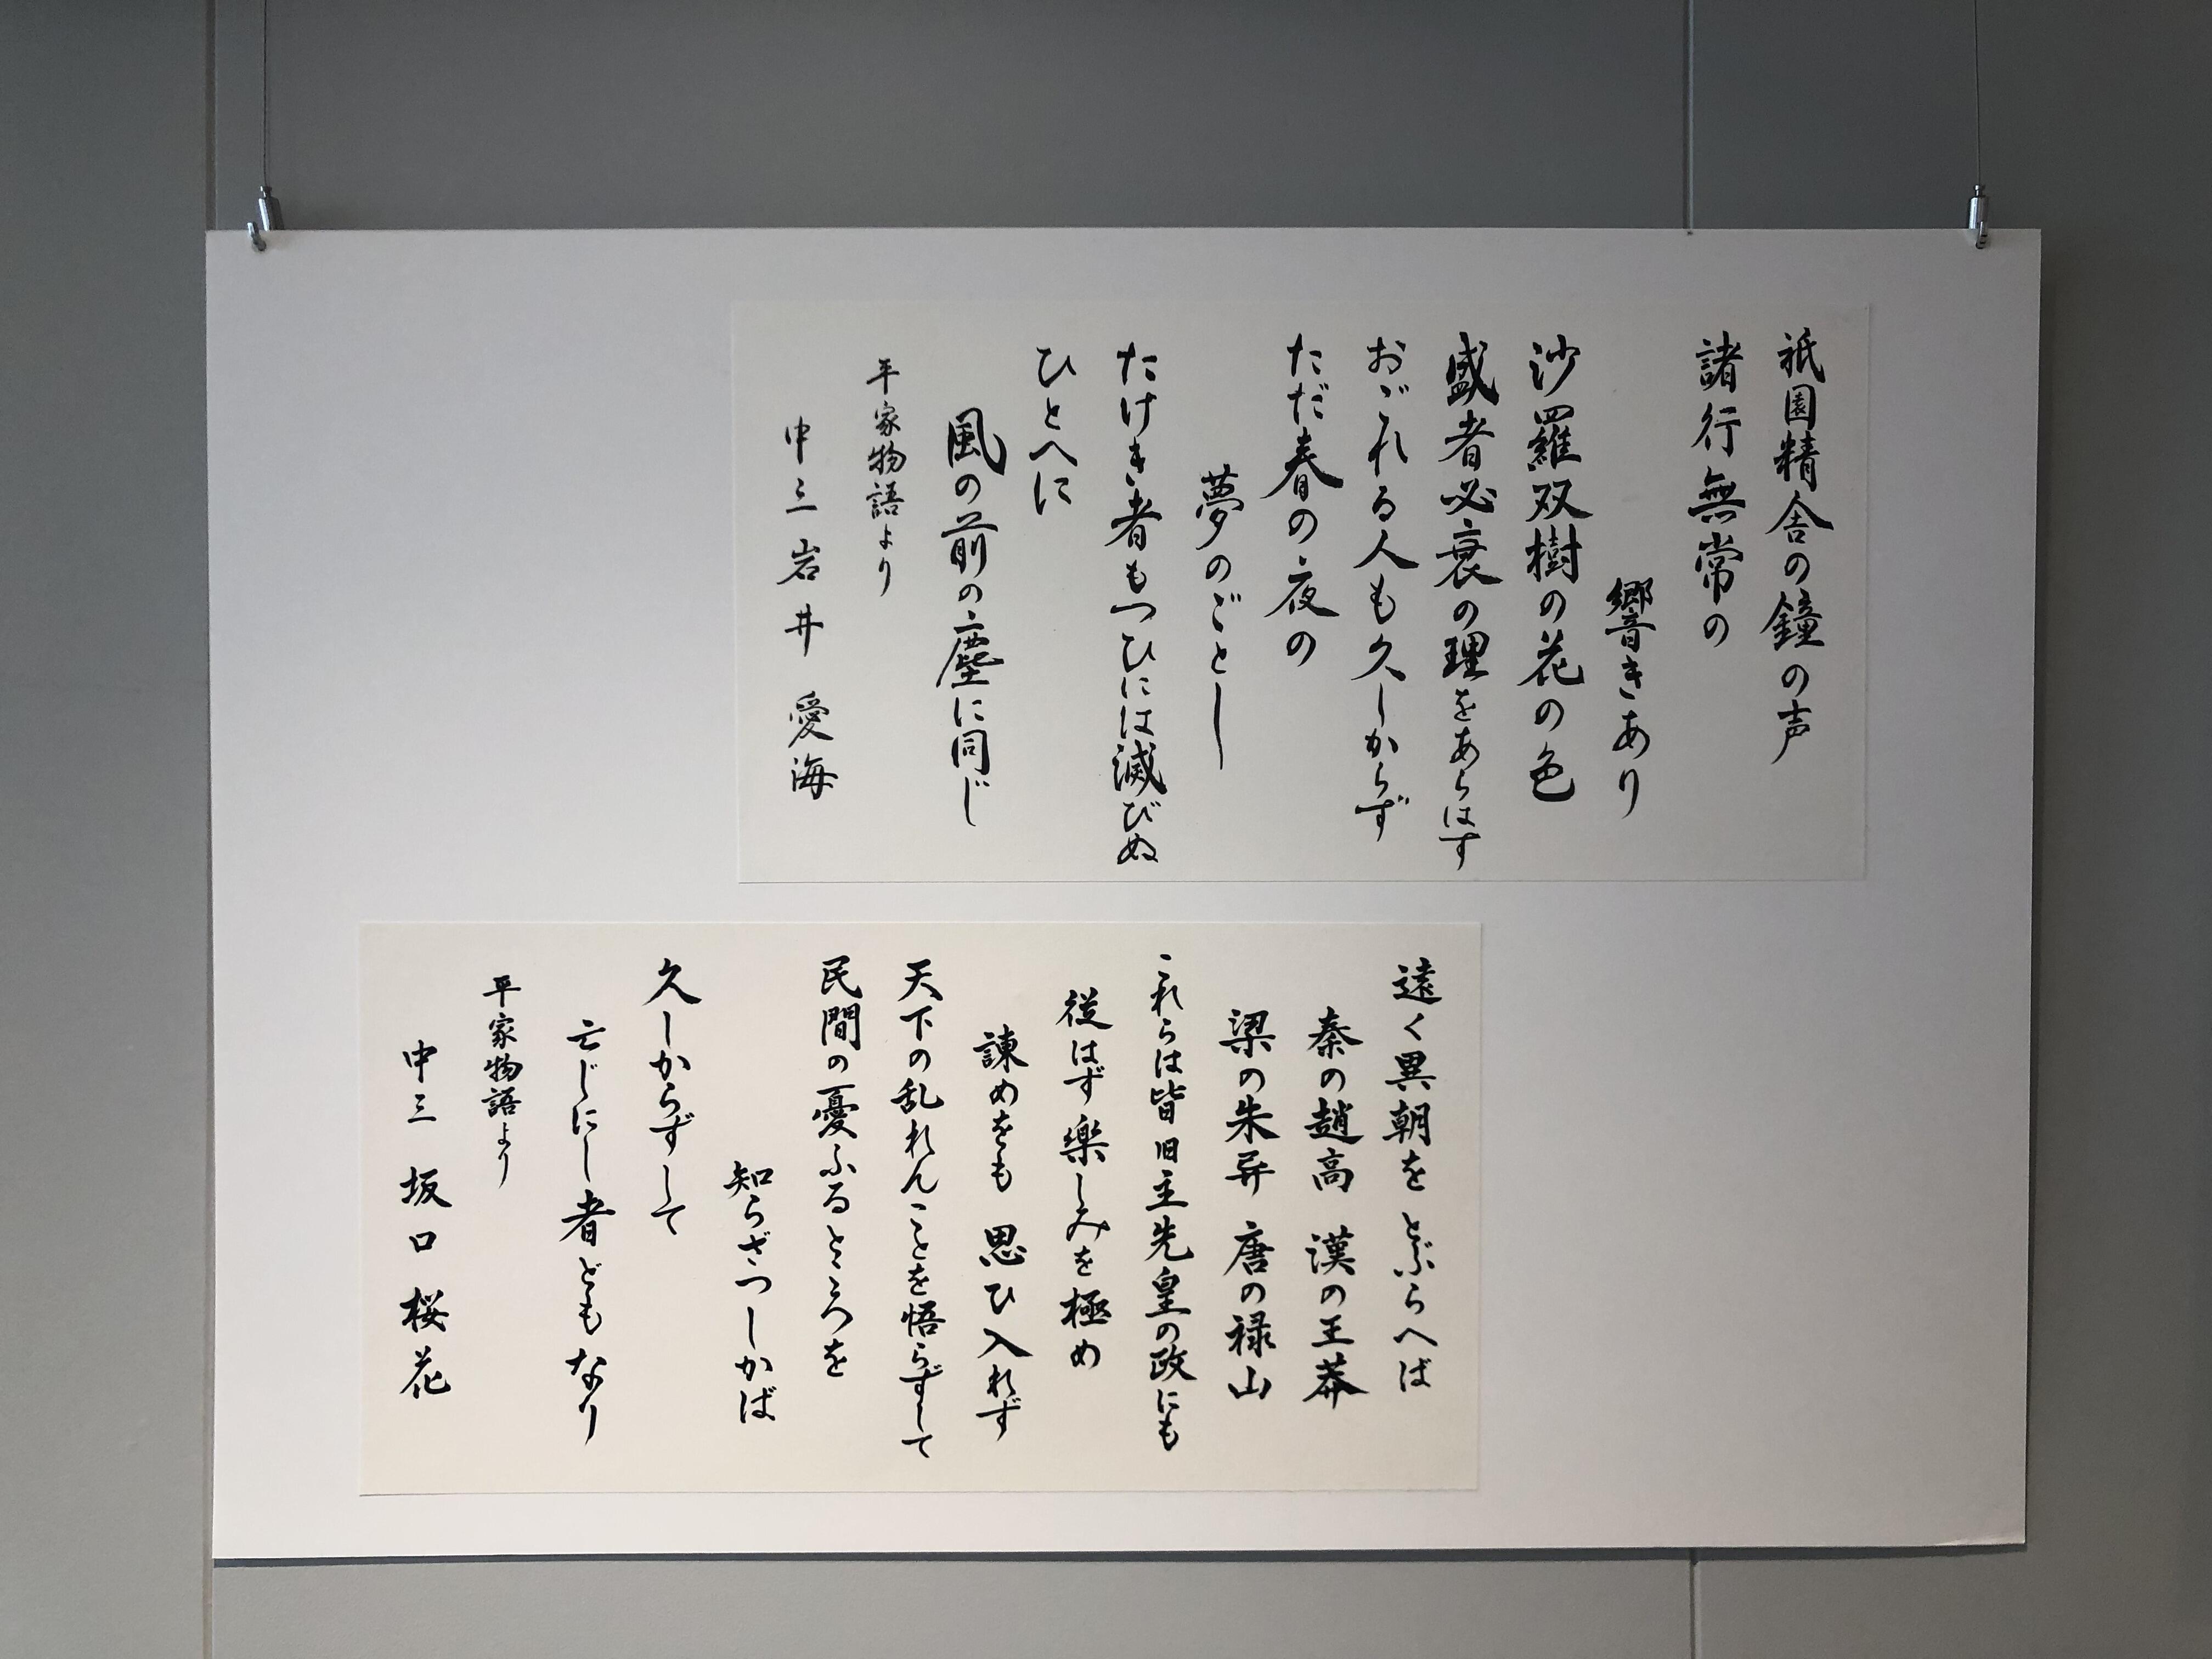 祇園精舎の鐘の声
諸行無常の
響きあり
沙羅双樹の花の色
盛者必衰の理をあらはす
おごれる人も久しからず
ただ春の夜の
夢のごとし
たけき者もつひには滅びぬ
ひとへに
風の前の塵に同じ
平家物語より
中三 岩井 愛海
遠く異朝をとぶらへば
秦の趙高 漢の王莽
梁の朱异 唐の禄山
これらは皆旧主先皇の政にも
従はず楽しみを極め
諌めをも 思ひ入れず
天下の乱れんことを悟らずして
民間の憂ふるところを
知らざつしかば
久しからずして
亡じにし者どもなり
平家物語より
中三 坂口 桜花